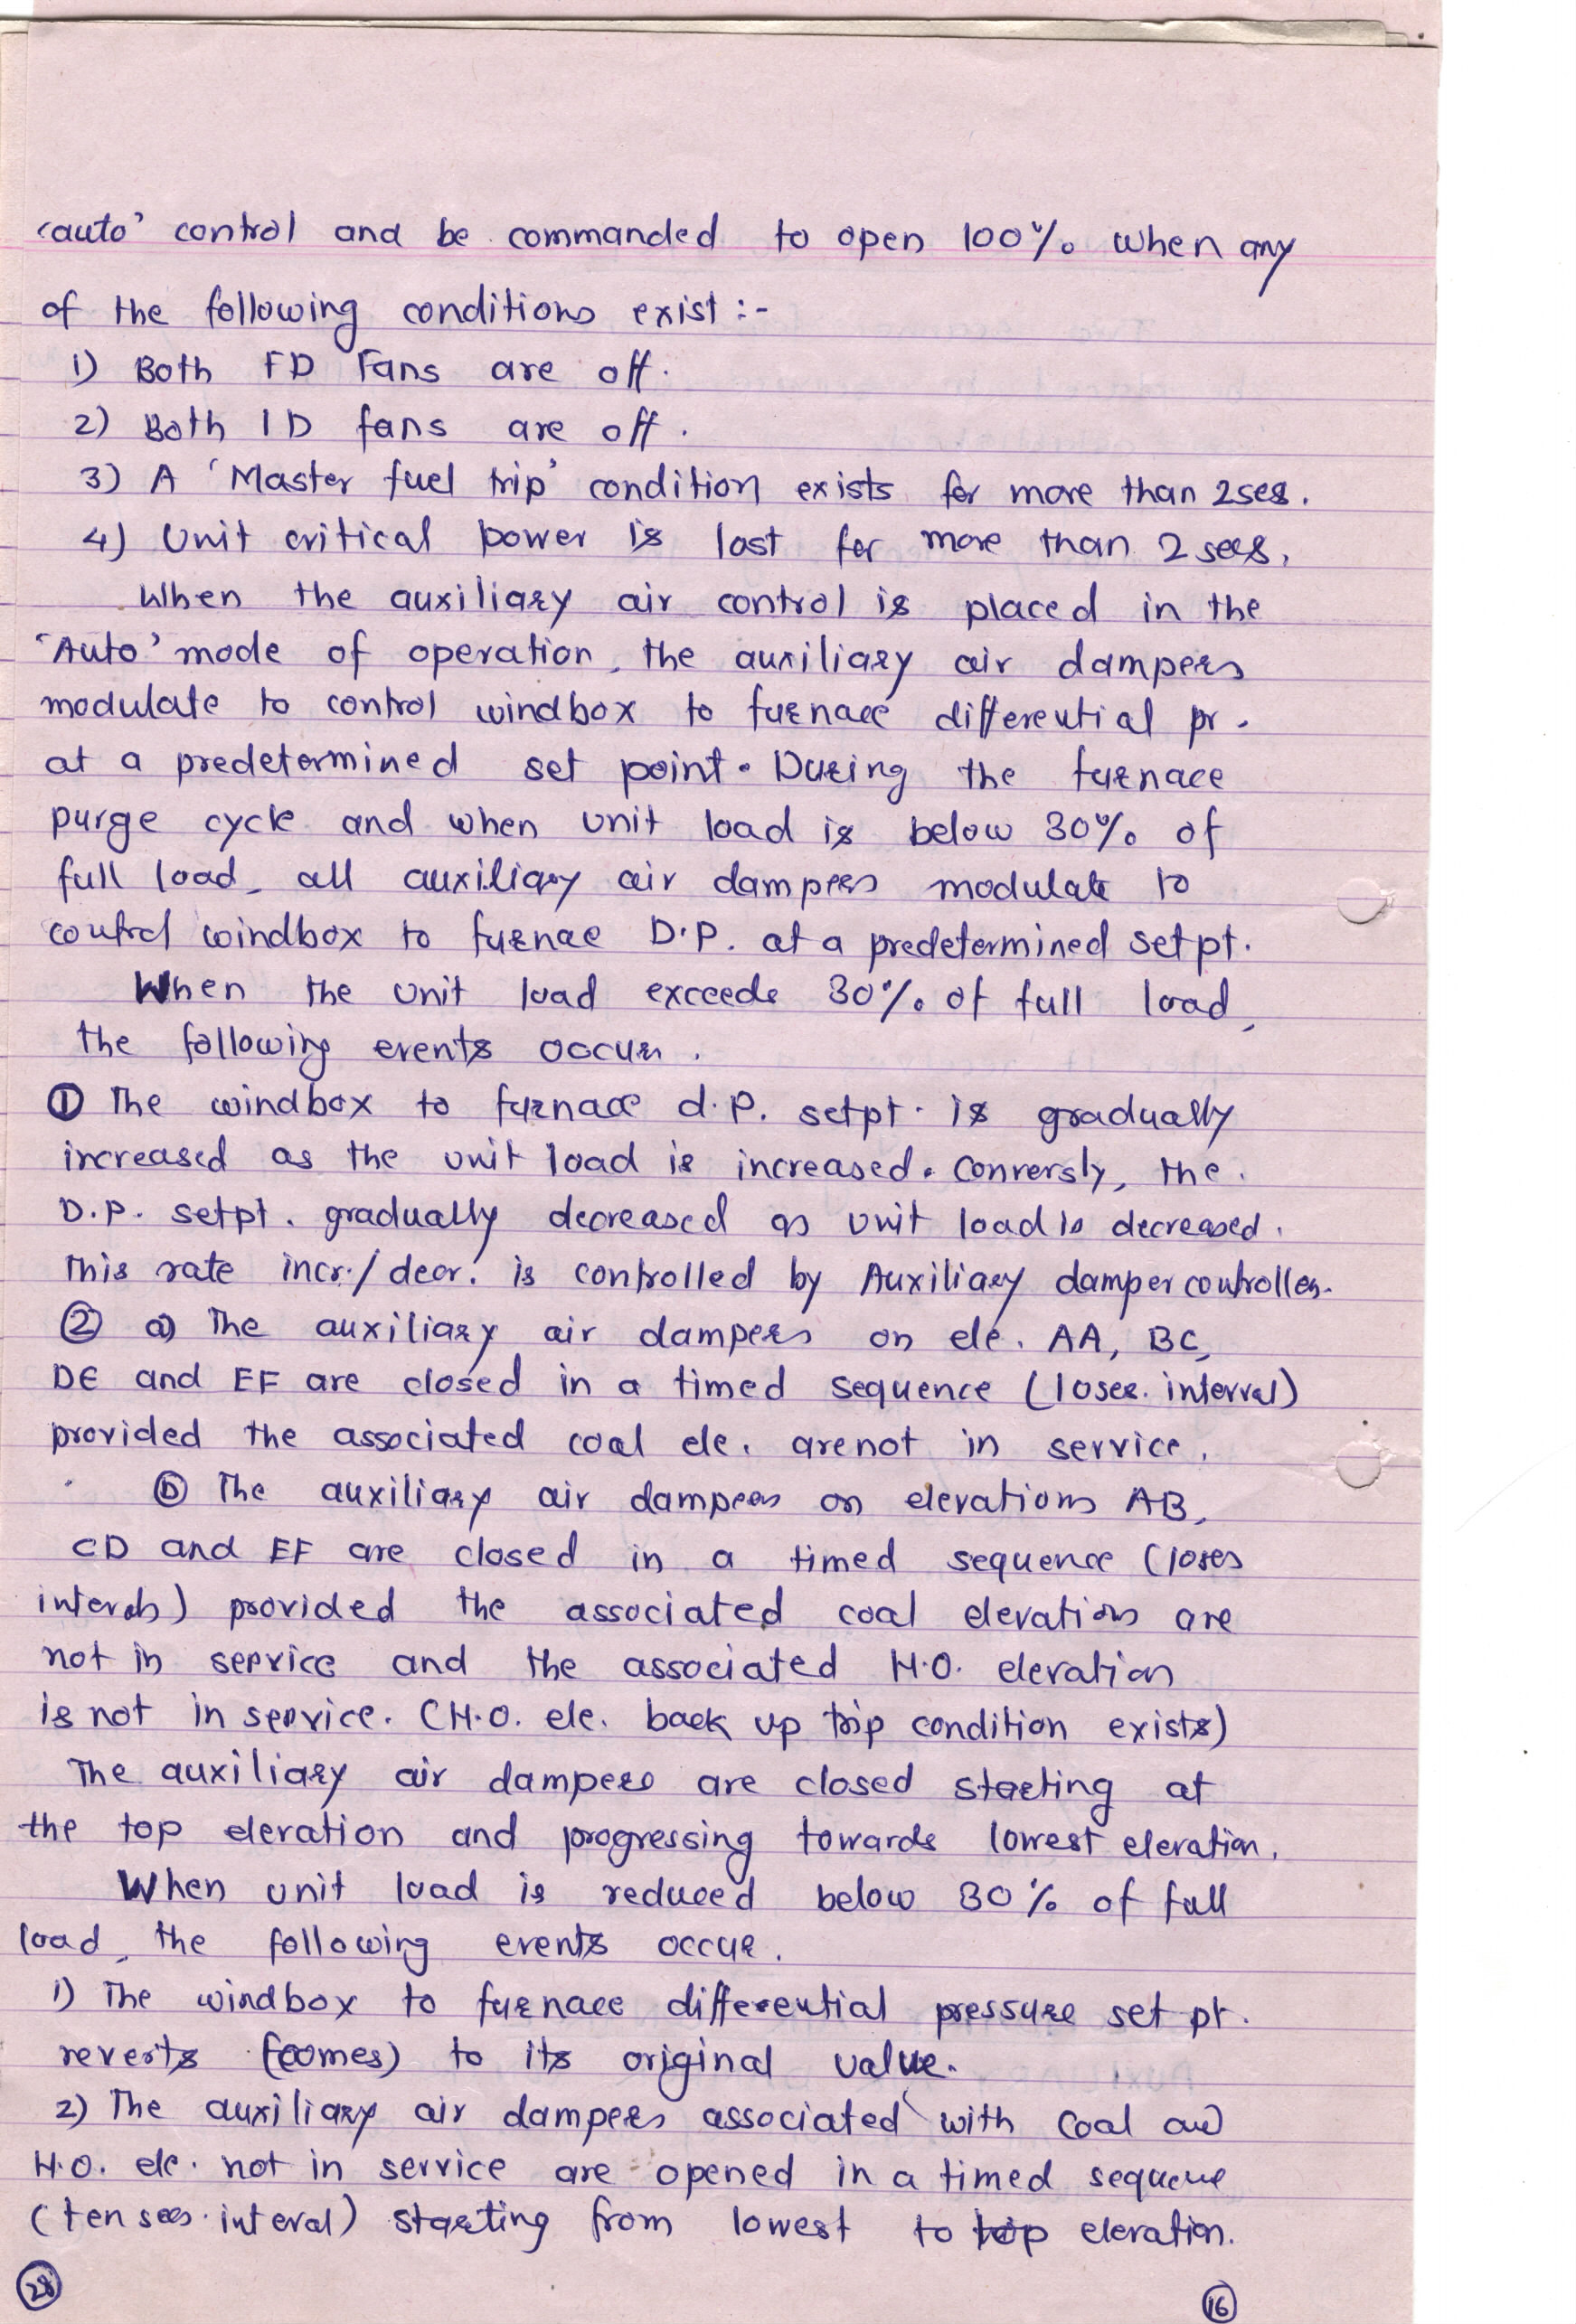 'auto' control and be commanded to open 100% when any
of the following conditions exist :-
1) Both FD Fans are off.
2) Both ID fans are off.
3) A 'Master fuel trip' condition exists for more than 2 secs.
4) Unit critical power is lost for more than 2 secs.
When the auxiliary air control is placed in the
'Auto' mode of operation, the auxiliary air dampers
modulate to control windbox to furnace differential pr.
at a predetermined set point. During the furnace
purge cycle and when unit load is below 30% of
full load, all auxiliary air dampers modulate to
control windbox to furnae D.P. at a predetermined setpt.
When the unit load exceeds 30% of full load,
the following events occurs.
① The windbox to furnace d.p. setpt. is gradually
increased as the unit load is increased. Conversly, the
D.P. setpt. gradually decreased as unit load is decreased.
This rate incr./decr. is controlled by Auxiliary damper controller.
② a) The auxiliary air dampers on ele. AA, BC,
DE and EF are closed in a timed sequence (10 sec. interval)
provided the associated coal ele. are not in service.
ⓑ The auxiliary air dampers on elevations AB,
CD and EF are closed in a timed sequence (10 secs
intervals) provided the associated coal elevations are
not in service and the associated H.O. elevation
is not in service. (H.O. ele. back up trip condition exists)
The auxiliary air dampers are closed starting at
the top elevation and progressing towards lowest elevation.
When unit load is reduced below 30% of full
load, the following events occur.
1) The windbox to furnace differential pressure set pt.
reverts (comes) to its original value.
2) The auxiliary air dampers associated with coal and
H.O. ele. not in service are opened in a timed sequence
(ten secs. interval) starting from lowest to top elevation.
28
16